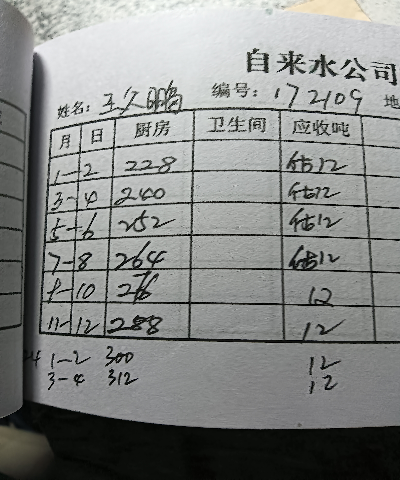 自来水公司
姓名: 王久鹏 编号: 172109 地
月 日 厨房 卫生间 应收吨
1-2 228 估12
3-4 240 估12
5-6 252 估12
7-8 264 估12
9-10 276 12
11-12 288 12
1-2 300 12
3-4 312 12